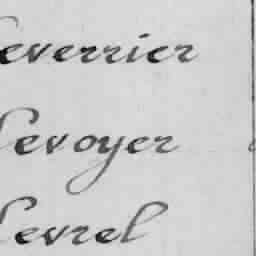 Leverrier
Levoyer
Levrel